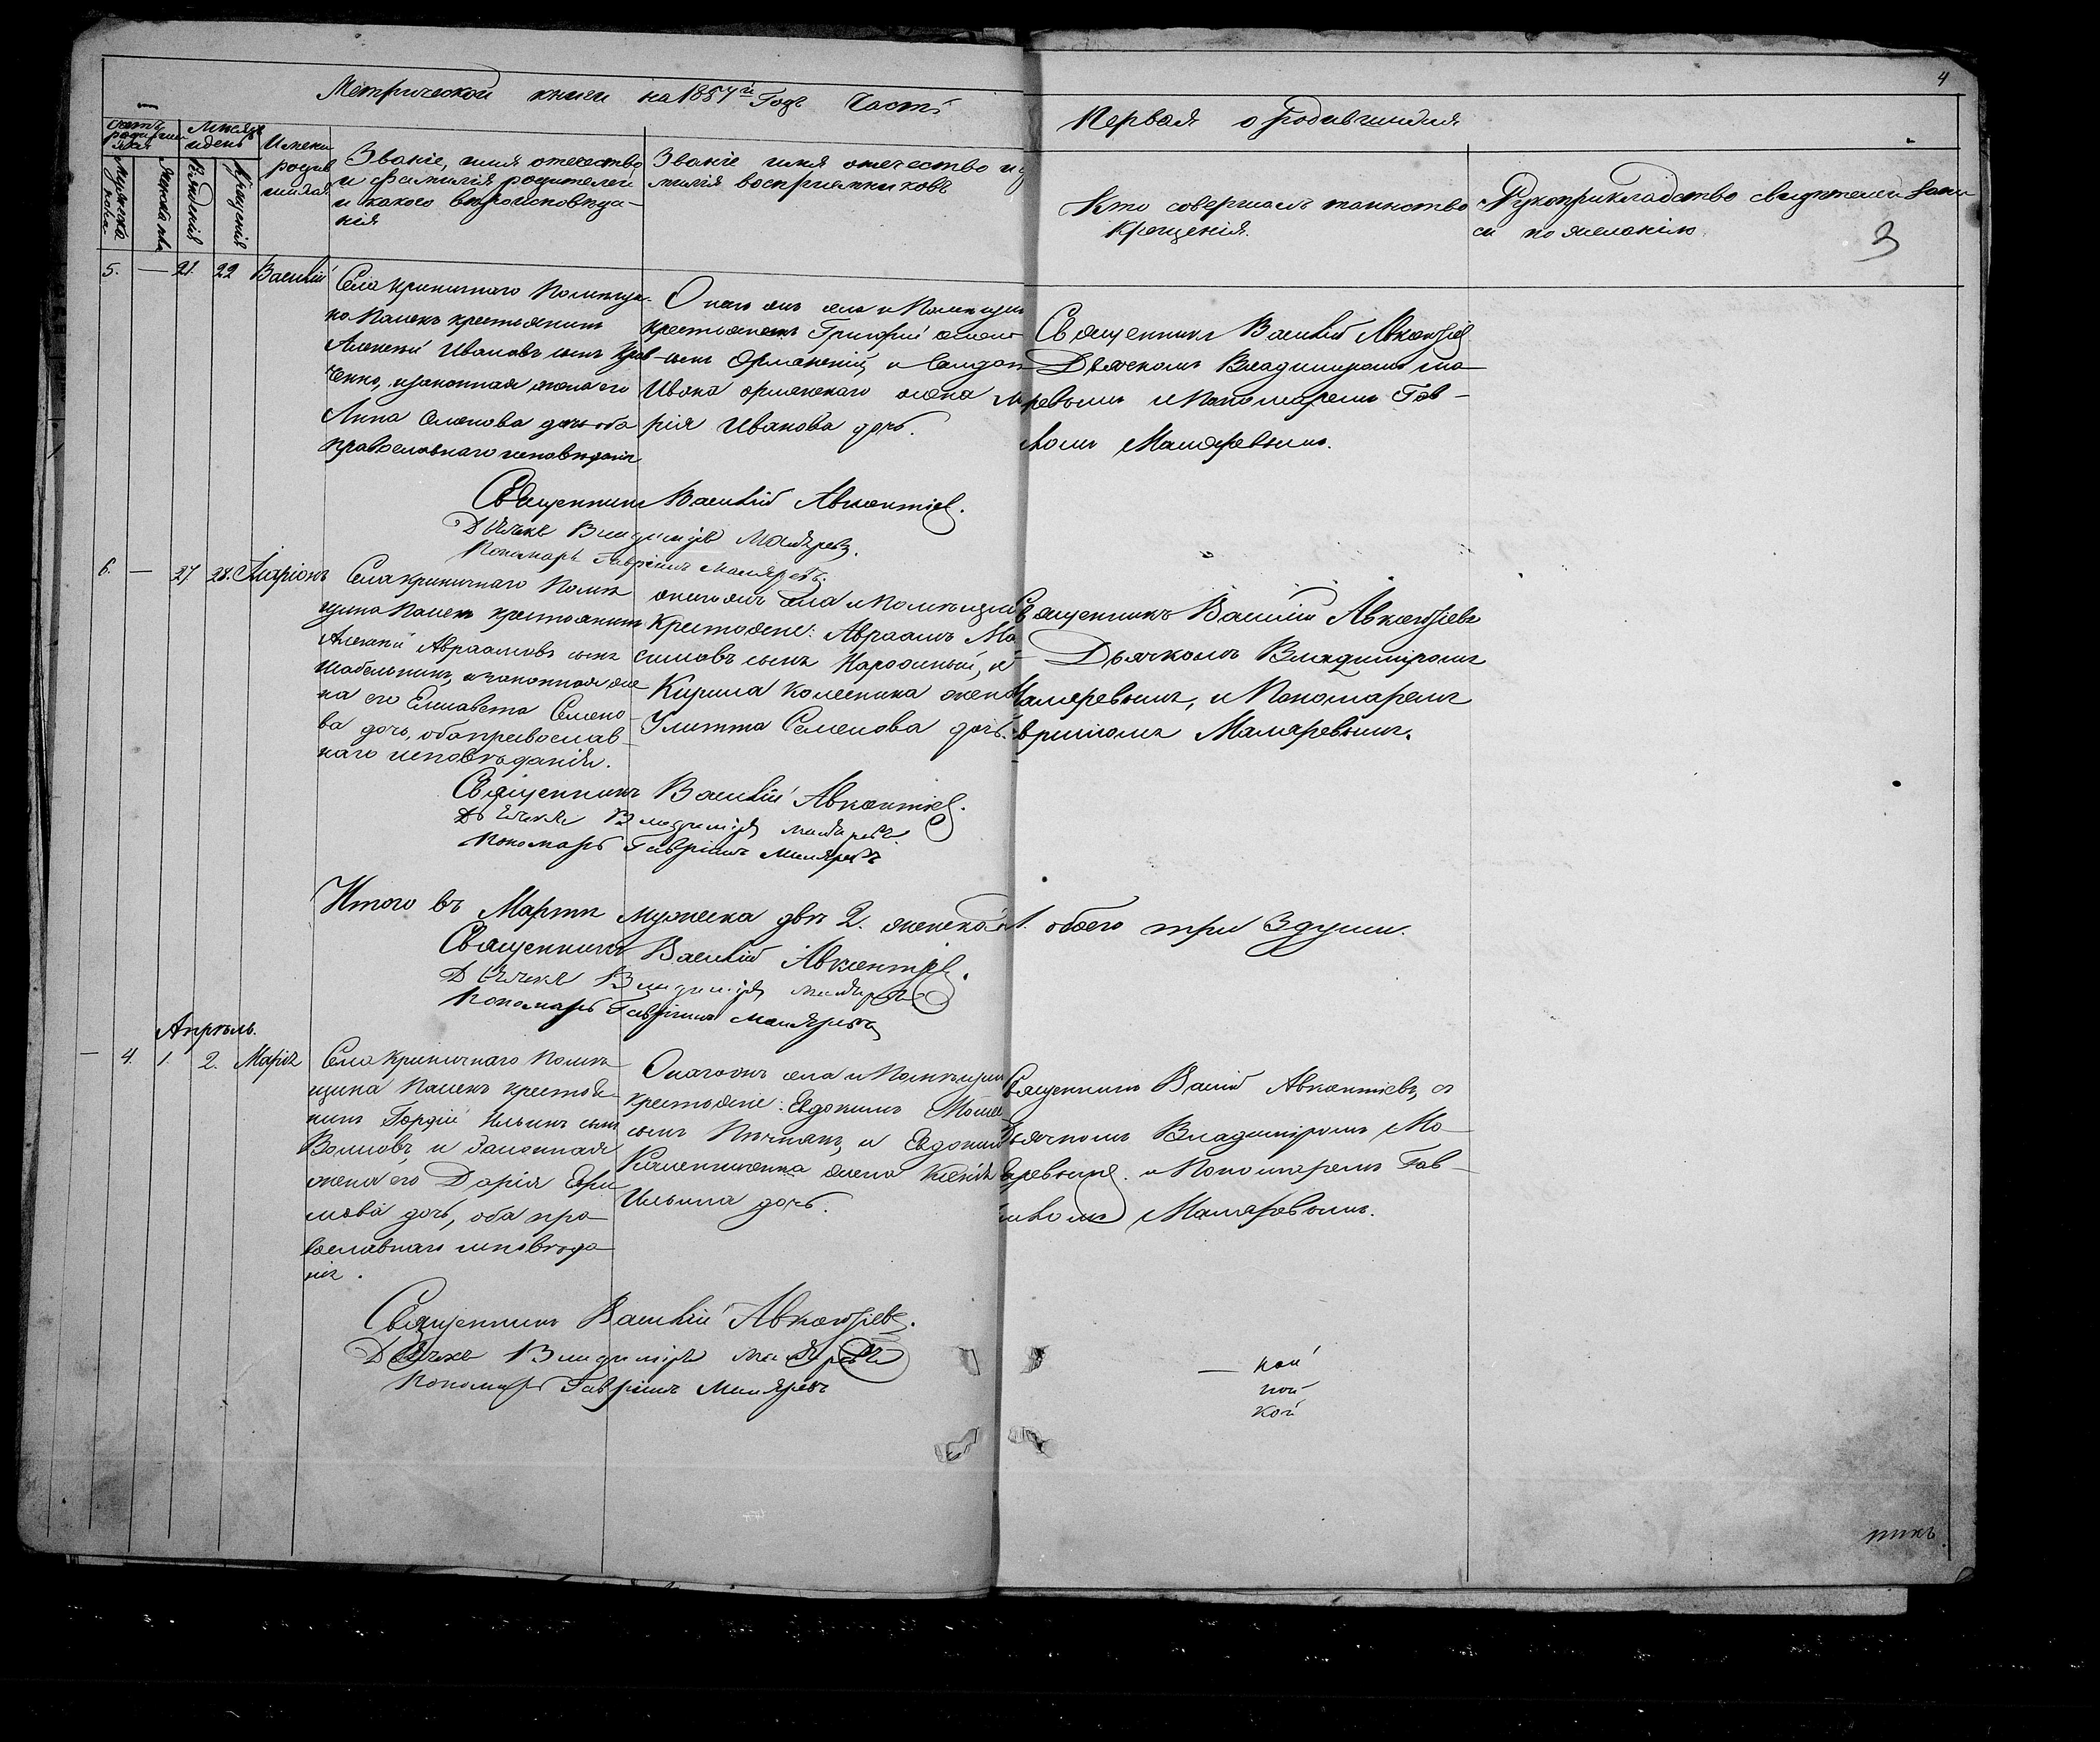 4
Метрической книги на 1857й Годъ Часть
Первая о родившихся
Счетъ родившихся
Мѣсяцъ и день
Мужеска пола
Женска пола
Рожденія
Крещенія
Имена родившихся
Званіе, имя отечество
и фамилія родителей
и какого вѣроисповѣда-
нія
Званіе имя отечество и
милія воспріемниковъ
Кто совершалъ таинство
Крещенія.
Рукоприкладство свидѣтелей запи
си по желанію
3
5. — 21. 22 Василій
Села Криничнаго Помѣщи-
ка крестьянинъ
Алексѣй Ивановъ сынъ
ченко, изаконная жена его
Анна Семенова дочь оба
православнаго исповѣданія
Онаго жъ села и Помѣщика
крестьянинъ Григорій
сынъ и
Ивана жена Ма
рія Иванова дочь.
Священникъ Василій Авксентіевъ
Дьячкомъ Владиміромъ Ма
ревымъ и Пономаремъ Гав-
ломъ Маляревымъ.
Священникъ Василій Авксентіевъ.
Дьячекъ Владиміръ Маляревъ.
Пономарь Гавріилъ Маляревъ.
6. — 27 28. Иларіонъ
Села Криничнаго Помѣ
щика крестьянинъ
Алексѣй Авраамовъ сынъ
Шабельникъ, и законная же
на его Елисавета Семено-
ва дочь, оба православ-
наго исповѣданія.
онаго жъ села и Помѣщика
Крестьяне: Авраамъ Ма
симовъ сынъ и
Кирила Колесника жена
Улитта Семенова дочь.
Священникъ Василій Авксентіевъ
Дьячкомъ Владиміромъ
Маляревымъ, и Пономаремъ
вріиломъ Маляревымъ.
Священникъ Василій Авксентіевъ.
Дьячекъ Владиміръ Маляревъ.
Пономарь Гавріилъ Маляревъ
Итого въ Мартѣ мужеска двѣ 2. женска 1. обоего три 3 души.
Священникъ Василій Авксентіевъ.
Дьячекъ Владиміръ Маляревъ
Пономарь Гавріилъ Маляревъ
Апрѣль.
— 4. 1. 2. Марія
Села Криничнаго Помѣ
щика крестья-
нинъ Гордій Ильинъ сынъ
Волковъ, и законная
жена его Дарія Ефи
мова дочь, оба пра-
вославнаго исповѣда
нія.
Онаго жъ села и Помѣщика
крестьяне: Евдокимъ
сынъ и Евдокима
жена Ксенія
Ильина дочь.
Священникъ Василій Авксентіевъ, съ
Дьячкомъ Владиміромъ Ма-
ляревымъ. и Пономаремъ Гав-
ріиломъ Маляревымъ.
Священникъ Василій Авксентіевъ.
Дьячекъ Владиміръ Маляревъ
Пономарь Гавріилъ Маляревъ
— кой
ной
кой
никъ.